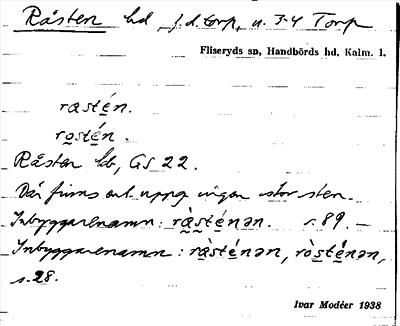 Råsten hd, f.d. torp, n. 3-4 Torp
Fliseryds sn, Handbörds hd, Kalm. l.
rastén.
rostén.
Råsten hb, GS 22.
Där finns enl uppg ingen stor sten.
Inbyggarenamn: ràsténən. s. 89. —
Inbyggarenamn: ràsténən, ròsténən,
s. 28.
Ivar Modéer 1938